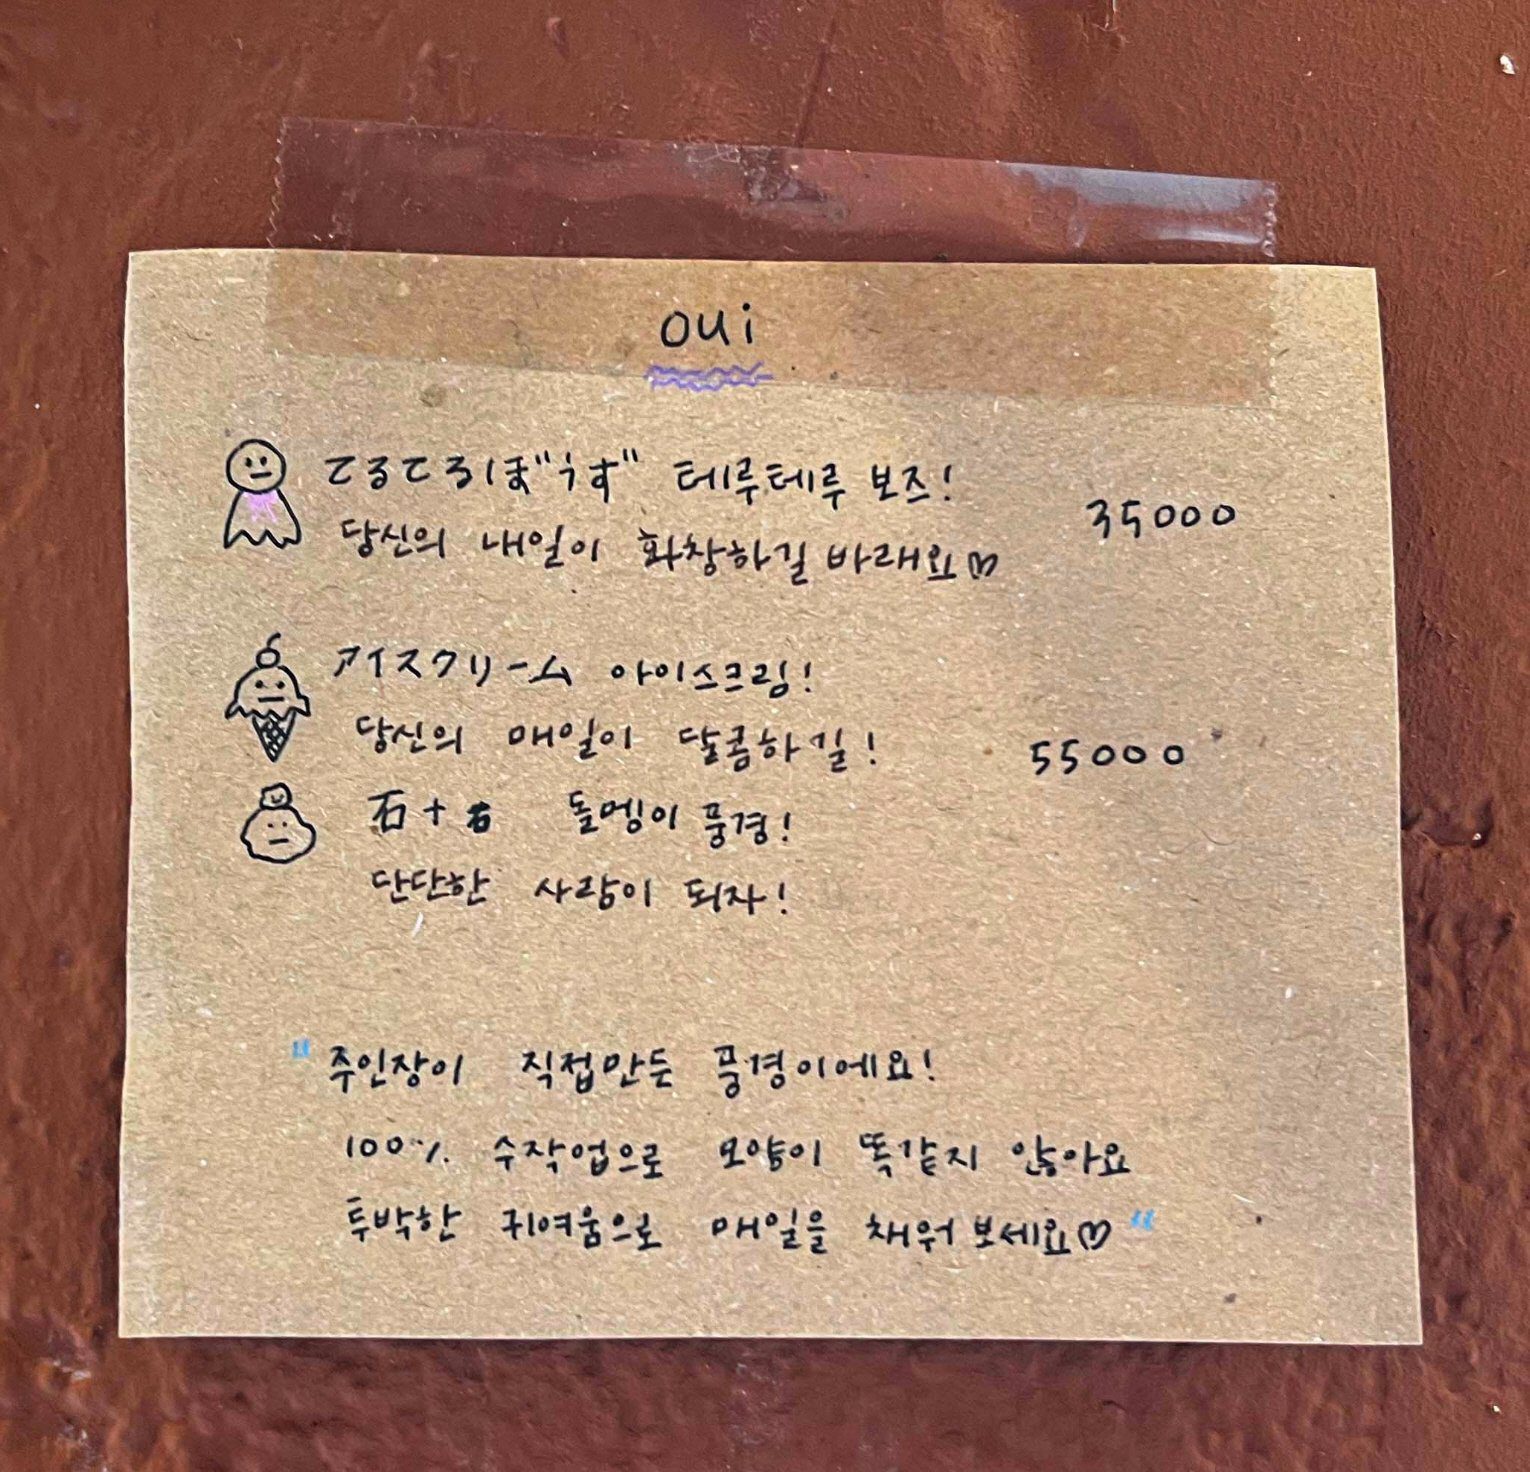 oui
てるてるぼ"うず" 테루테루 보즈!
당신의 내일이 화창하길 바래요♡
35000
アイスクリーム 아이스크림!
당신의 매일이 달콤하길!
55000
石+石 돌멩이 풍경!
단단한 사람이 되자!
" 주인장이 직접만든 풍경이에요!
100% 수작업으로 모양이 똑같지 않아요
투박한 귀여움으로 매일을 채워보세요♡ "